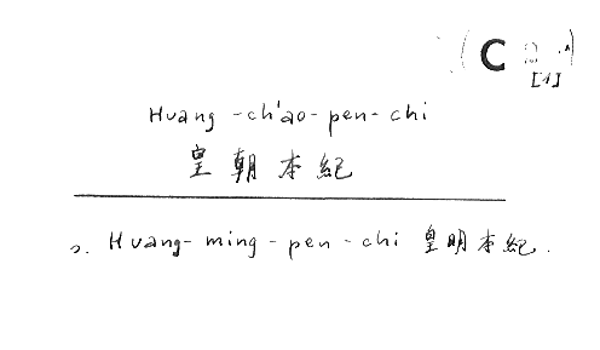 ( C )
[1]
Huang-ch'ao-pen-chi
皇朝本紀
s. Huang-ming-pen-chi 皇明本紀.